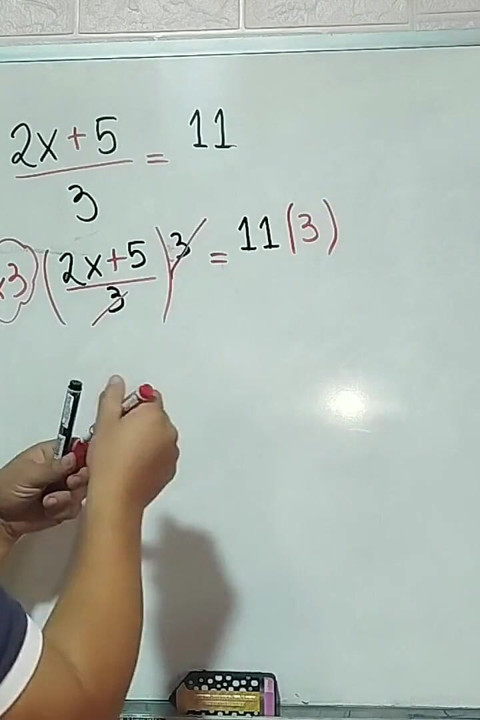 2x+5/3 = 11
x3 (2x+5/3)3 = 11(3)